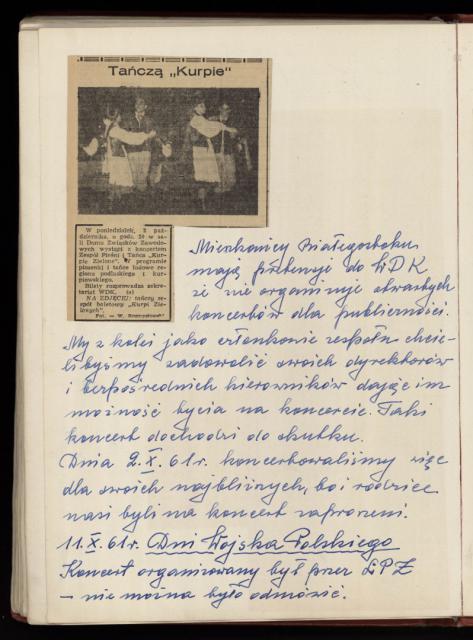 Tańczą „Kurpie"
W poniedziałek, 2 paź-
dziernika, o godz. 20 w sa-
li Domu Związków Zawodo-
wych wystąpi z koncertem
Zespół Pieśni i Tańca „Kur-
pie Zielone". W programie
piosenki i tańce ludowe re-
gionu podlaskiego i kur-
piowskiego.
Bilety rozprowadza sekre-
tariat WDK. (s)
NA ZDJĘCIU: tańczy ze-
spół baletowy „Kurpi Zie-
lonych".
Fot. — W.
Mieszkańcy Białegostoku
mają pretensje do WDK
że nie organizuje otwartych
koncertów dla publiczności.
My z kolei jako członkowie zespołu chcie-
libyśmy zadowolić swoich dyrektorów
i bezpośrednich kierowników dając im
możność bycia na koncercie. Taki
koncert dochodzi do skutku.
Dnia 2.X.61r. koncertowaliśmy więc
dla swoich najbliźnych, bo i rodzice
nasi byli na koncert zaproszeni.
11.X.61r. Dni Wojska Polskiego
Koncert organizowany był przez LPŻ
– nie można było odmówić.